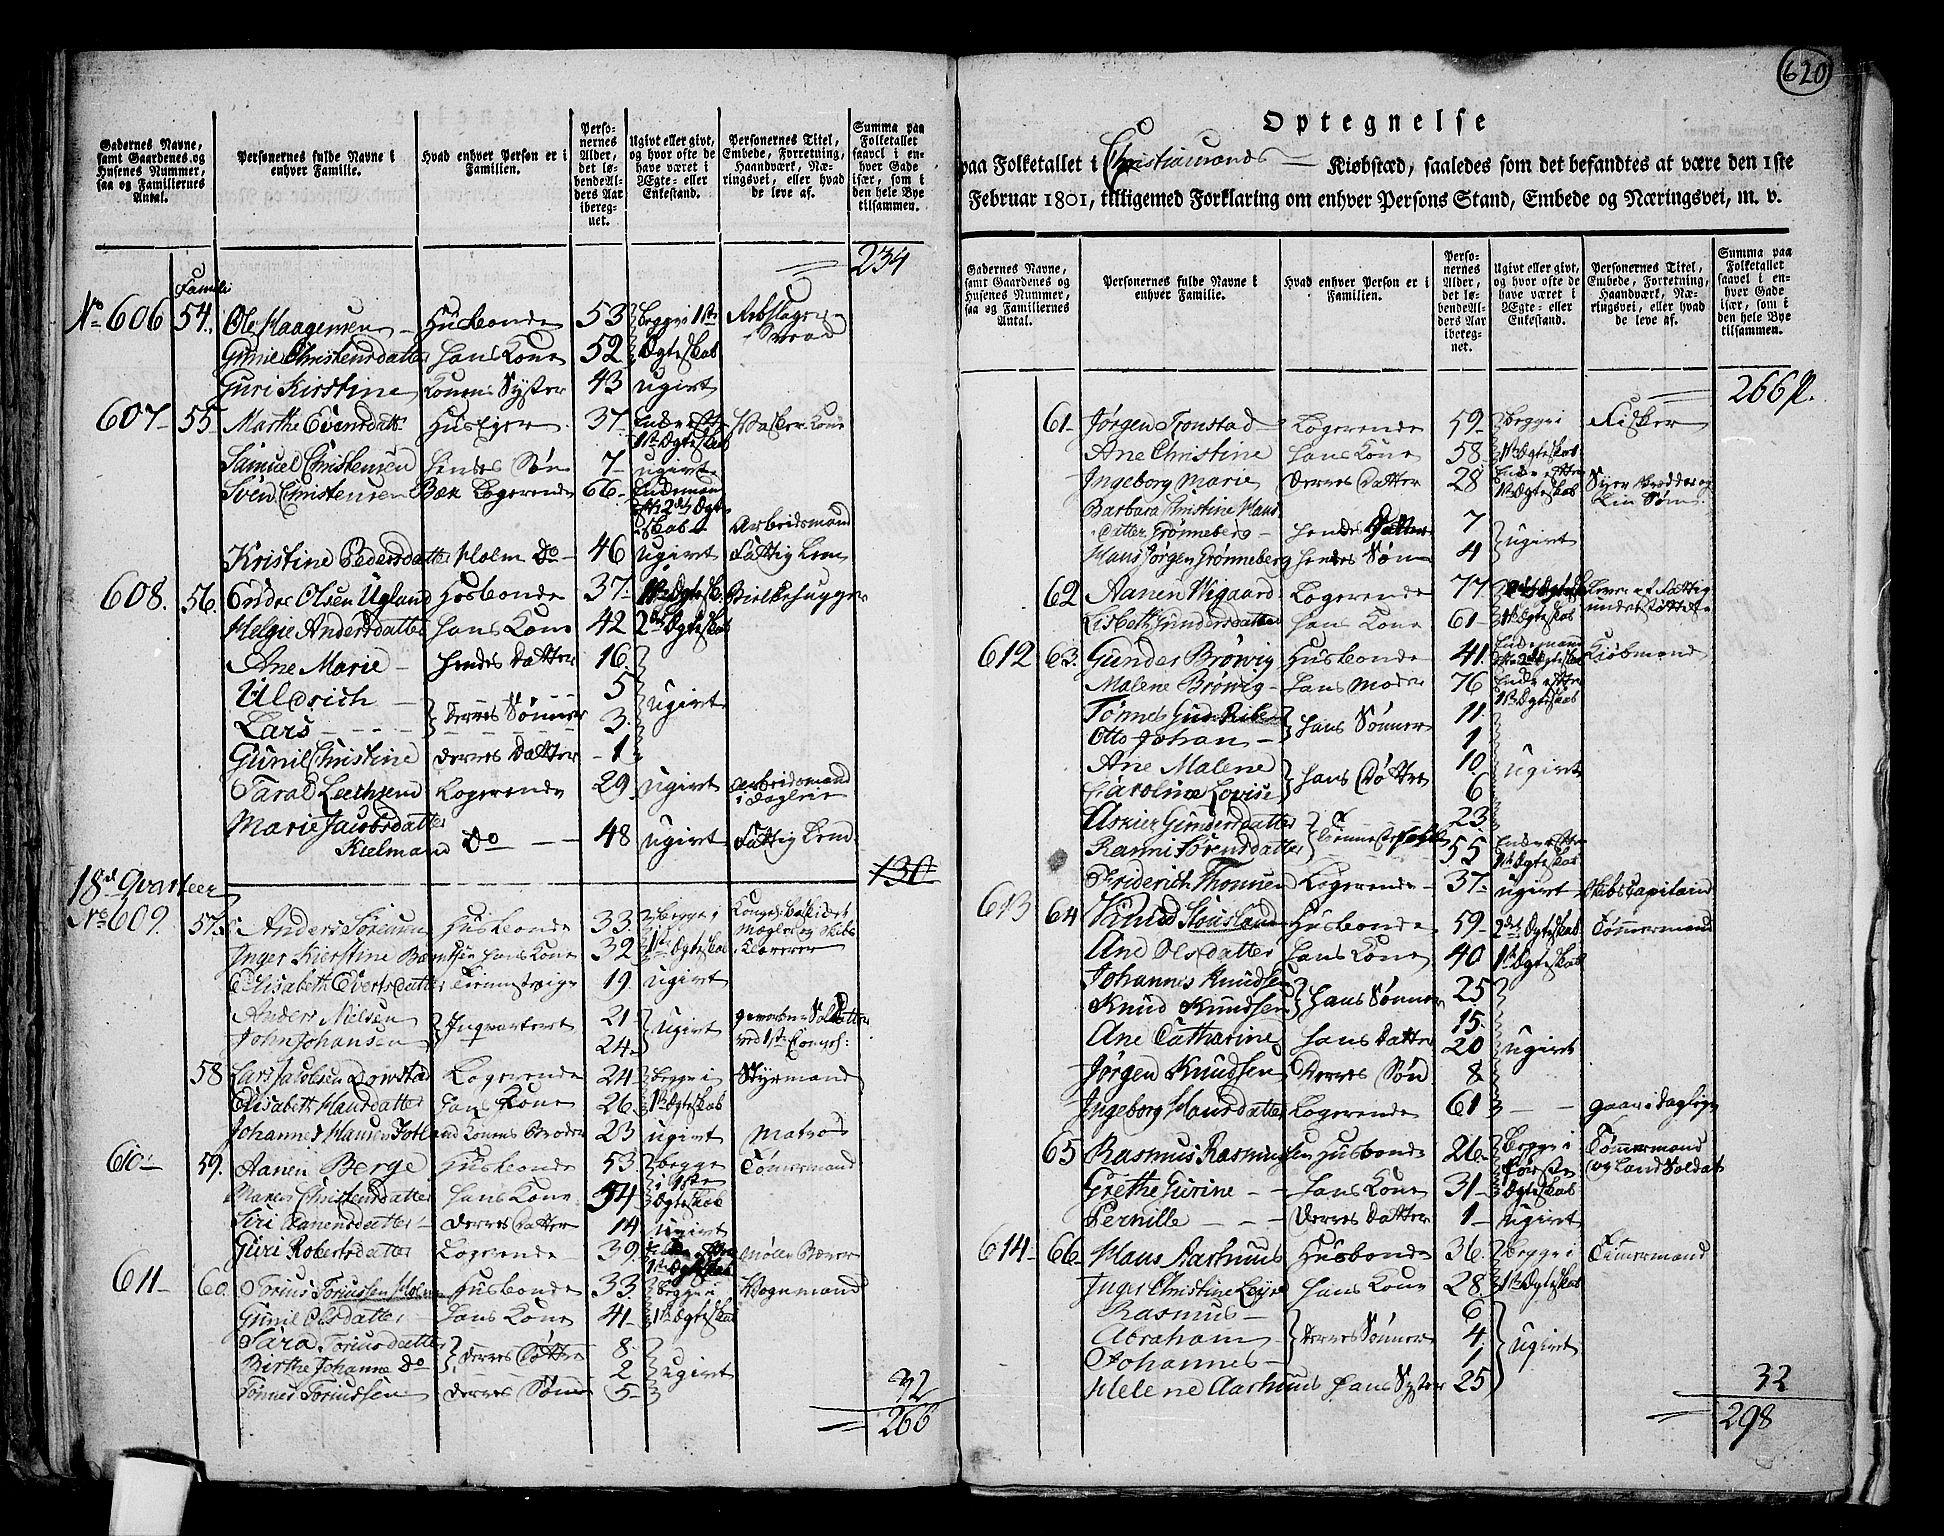 620
Gadernes Navne, samt Gaardenes og Husenes Nummer, saa og Familiernes Antal.
Personernes fulde Navne i enhver Familie.
Hvad enhver Person er i Familien.
Personernes Alder, det løbende Alders Aar iberegnet.
Ugivt eller givt, og hvor ofte de have været i Ægte- eller Enkestand.
Personernes Titel, Embede, Forretning, Haandværk, Næringsvei, eller hvad de leve af.
Summa paa Folketallet saavel i enhver Gade især, som i den hele Bye tilsammen.
234
Familie
No 606 54. Ole Haagensen Husbonde 53 begge i 1ste
Gunie Christensdatter hans Kone 52 Ægteskab
Guri Kirstine Konens Syster 43 ugivt
607 55 Marthe Evensdatt: HusEger 37 Enke efter 1ste Ægteskab Vasker Kone
Samuel Christensen hendes Søn 7 ugivt
Svend Christensen Bæk Logerende 66 Arbeidsmand
Kristine Pedersdatter Holm Do 46 ugivt Fattig Lem
608. 56. Endre Olsen Ugland Hosbonde 37 1ste Ægteskab Bielkehugger
Helgie Andersdatter hans Kone 42 2det Ægteskab
Ane Marie hendes Datter 16
Uldrich 5
Lars } deres Sønner 3 } ugivt
Gunil Christine deres Datter 1
Tarald Leethsend Logerende 29 ugivt Arbeidsmand
Marie Jacobsdatter Kielmand Do 48 ugivt Fattig Lem
130
18d Qvarteer
No 609. 57. Anders Sørensen Husbonde 33 begge i
Inger Kierstine Berntsen hans Kone 32 1ste Ægteskab
Elisabeth Evertsdatter Tienestepige 19 ugivt
Anders Nielsen 21
John Johansen } Inqvarteret 24 } ugivt
58 Lars Jacobsen Dowstad Logerende 24 begge i Styrmand
Elisabeth Hansdatter hans Kone 26 1ste Ægteskab
Johannes Hansen Konens Broder 23 ugivt Matros
610 59. Aanen Berge Husbonde 53 begge i 1ste Tømermand
Maren Christensdatter hans Kone 54 Ægteskab
Siri Aanensdatter deres Datter 14 ugivt
Guri Robertsdatter Logerende 39
611 60. Torius Toriussen Holm Husbonde 33 begge i Vognmand
Gunil Olsdatter hans Kone 41 1ste Ægteskab
Sara Toriusdatter 8
Birthe Johanne Do } deres Døttre 2 } ugivt
Tønnes Toriussen deres Søn 5
32
266
Optegnelse
paa Folketallet i Christiansands Kiøbstæd, saaledes som det befandtes at være den 1ste
Februar 1801, tilligemed Forklaring om enhver Persons Stand, Embede og Næringsvei, m. v.
Gadernes Navne, samt Gaardenes og Husenes Nummer, saa og Familiernes Antal.
Personernes fulde Navne i enhver Familie.
Hvad enhver Person er i Familien.
Personernes Alder, det løbende Alders Aar iberegnet.
Ugivt eller givt, og hvor ofte de have været i Ægte- eller Enkestand.
Personernes Titel, Embede, Forretning, Haandværk, Næringsvei, eller hvad de leve af.
Summa paa Folketallet saavel i enhver Gade især, som i den hele Bye tilsammen.
266
61 Jørgen Tronstad Logerende 59 begge i Fisker
Ane Christine hans Kone 58 1ste Ægteskab
Ingeborg Marie deres Datter 28 Enke efter 1ste Ægteskab
Barbara Christine Hansdatter Grønneberg hendes Datter 7
Hans Jørgen Grønneberg hendes Søn 4 } ugivt
62 Aanen Wigaard Logerende 77
Lisbeth Gundersdatter hans Kone 61 1ste Ægteskab
612 63. Gunder Brøwig Husbonde 41 Kiøbmand
Malene Brøwig hans Moder 76 Enke efter 1ste Ægteskab
Tønnes 11
Otto Johan } hans Sønner 1
Ane Malene 10 } ugivt
Caroline Lovise } hans Døttre 6
Gundersdatter 23
Ranni Sørensdatter 55 Enke efter 1ste Ægteskab
Friderich Thomsen Logerende 37 ugivt Skibscapitain
613 64 Knud Stousland Husbonde 59 2det Ægteskab Tømmermand
Ane Olsdatter hans Kone 40 1ste Ægteskab
Johannes Knudsen 25
Knud Knudsen } hans Sønner 15
Ane Catharine hans Datter 20 ugivt
Jørgen Knudsen deres Søn 8
Ingeborg Hansdatter Logerende 61
65 Rasmus Rasmussen Husbonde 26 begge i Tømermand
Grethe Gurine hans Kone 31 første Ægteskab og Land Soldat
Pernille deres Datter 1 ugivt
614 66 Hans Aarhuus Husbonde 36 begge i Tømermand
Inger Christine hans Kone 28 1ste Ægteskab
Rasmus 6
Abraham } deres Sønner 4 } ugivt
Johannes 1
Helene Aarhuus hans Syster 25
32
298